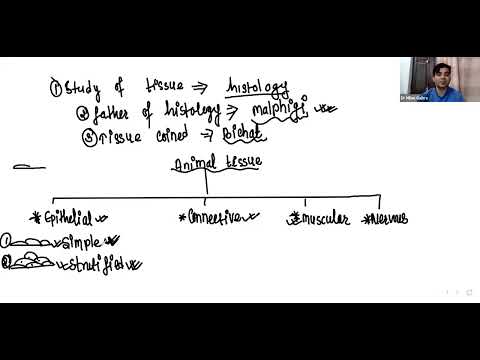 ① Study of tissue ⇒ histology
② father of histology ⇒ malphigi
③ Tissue coined ⇒ Bichat
Animal tissue
* Epithelial * Connective * Muscular * Nervous
① Simple
② Stratified